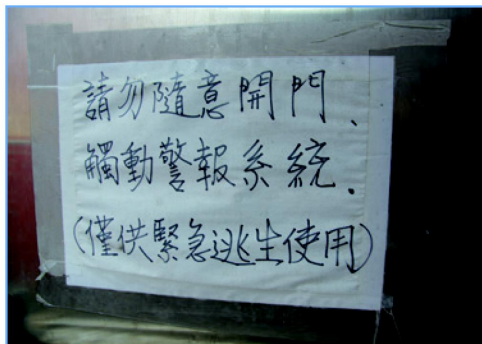 請勿隨意開門、
觸動警報系統.
(僅供緊急逃生使用)